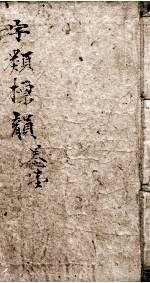 字類擇韻
卷壹